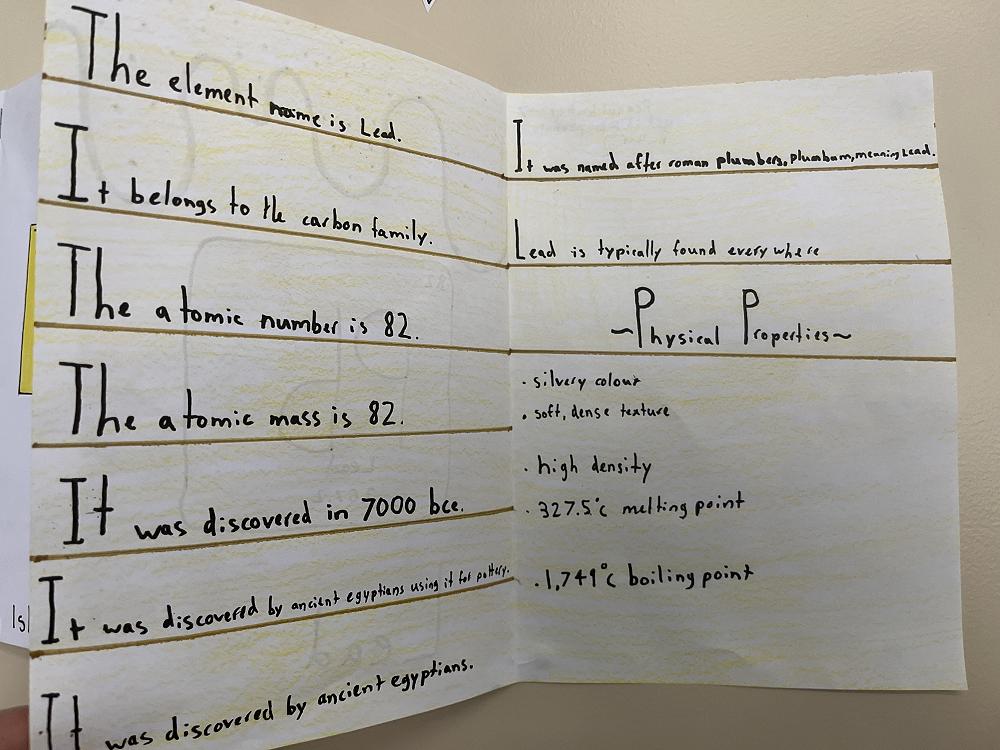 The element name is Lead.
It belongs to the carbon family.
The atomic number is 82.
The atomic mass is 82.
It was discovered in 7000 bce.
It was discovered by ancient egyptians using it for pottery.
It was discovered by ancient egyptians.
It was named after roman plumbers, plumbum, meaning Lead.
Lead is typically found everywhere
~Physical Properties~
· silvery colour
· soft, dense texture
· high density
· 327.5°c melting point
· 1,749°c boiling point